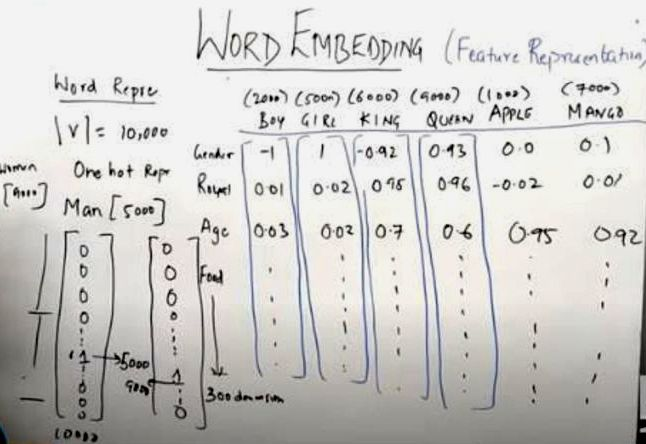 WORD EMBEDDING (Feature Representation)
Word Repre
|V| = 10,000
One hot Repr
Women
[9000]
Man [5000]
0 0
0 0
0 0
0 0
1 → 5000
9000 1
0
0 0
10000
(2000) (5000) (6000) (9000) (1000) (7000)
BOY GIRL KING QUEEN APPLE MANGO
Gender -1 1 -0.92 0.93 0.0 0.1
Royal 0.01 0.02 0.95 0.96 -0.02 0.01
Age 0.03 0.02 0.7 0.6 0.95 0.92
Food
300 dimension